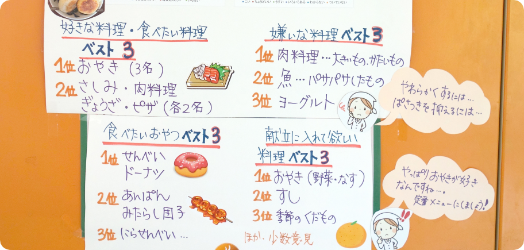 好きな料理・食べたい料理
ベスト3
1位 おやき (3名)
2位 さしみ・肉料理
ぎょうざ・ピザ (各2名)
嫌いな料理ベスト3
1位 肉料理…大きいもの、かたいもの
2位 魚…パサパサしたもの
3位 ヨーグルト
やわらかくするには…
ぱさつきを抑えるには…
食べたいおやつベスト3
1位 せんべい
ドーナツ
2位 あんぱん
みたらし団子
3位 にらせんべい…
献立に入れて欲しい
料理ベスト3
1位 おやき (野菜・なす)
2位 すし
3位 季節のくだもの
ほか、少数意見
やっぱりおやきが好き
なんですね…。
定番メニューにしましょう!